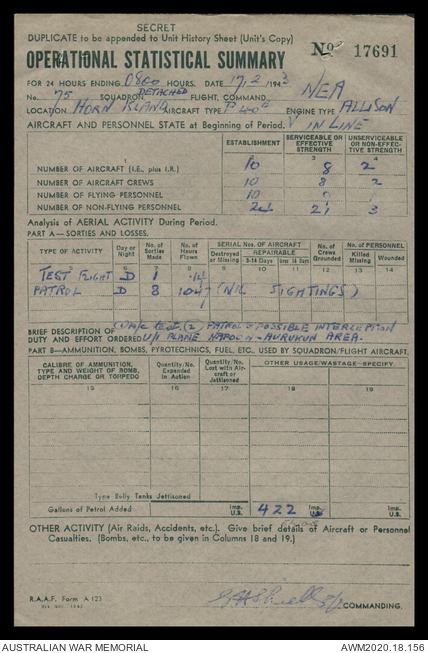 SECRET
DUPLICATE to be appended to Unit History Sheet (Unit's Copy)
OPERATIONAL STATISTICAL SUMMARY No 17691
FOR 24 HOURS ENDING 0800 HOURS. DATE 17.2.1943
No. 75 SQUADRON DETACHED FLIGHT, COMMAND NEA
LOCATION HORN ISLAND AIRCRAFT TYPE P40E ENGINE TYPE ALLISON
AIRCRAFT AND PERSONNEL STATE at Beginning of Period. V IN LINE
ESTABLISHMENT SERVICEABLE OR EFFECTIVE STRENGTH UNSERVICEABLE OR NON-EFFECTIVE STRENGTH
NUMBER OF AIRCRAFT (I.E., plus I.R.) 10 8 2
NUMBER OF AIRCRAFT CREWS 10 8 2
NUMBER OF FLYING PERSONNEL 10
NUMBER OF NON-FLYING PERSONNEL 24 21 3
Analysis of AERIAL ACTIVITY During Period.
PART A—SORTIES AND LOSSES.
TYPE OF ACTIVITY Day or Night No. of Sorties Made No. of Hours Flown SERIAL NOS. OF AIRCRAFT Destroyed or Missing REPAIRABLE 3-14 Days Over 14 Days No. of Crews Grounded No. of PERSONNEL Killed Missing Wounded
TEST FLIGHT D 1
PATROL D 8 (NIL SIGHTINGS)
BRIEF DESCRIPTION OF (1) A/C test. (2) PATROL - POSSIBLE INTERCEPTION
DUTY AND EFFORT ORDERED U/I PLANE MAPOON - AURUKUN AREA.
PART B—AMMUNITION, BOMBS, PYROTECHNICS, FUEL, ETC., USED BY SQUADRON/FLIGHT AIRCRAFT.
CALIBRE OF AMMUNITION, TYPE AND WEIGHT OF BOMB, DEPTH CHARGE OR TORPEDO Quantity/No. Expended in Action Quantity/No. Lost with Aircraft or Jettisoned OTHER USAGE/WASTAGE—SPECIFY
15 16 17 18 19
Type Belly Tanks Jettisoned
Gallons of Petrol Added Imp. U.S. 422 Imp. U.S. Imp. U.S.
OTHER ACTIVITY (Air Raids, Accidents, etc.). Give brief details of Aircraft or Personnel
Casualties. (Bombs, etc., to be given in Columns 18 and 19.)
R.A.A.F. Form A 123
COMMANDING.
AUSTRALIAN WAR MEMORIAL AWM2020.18.156